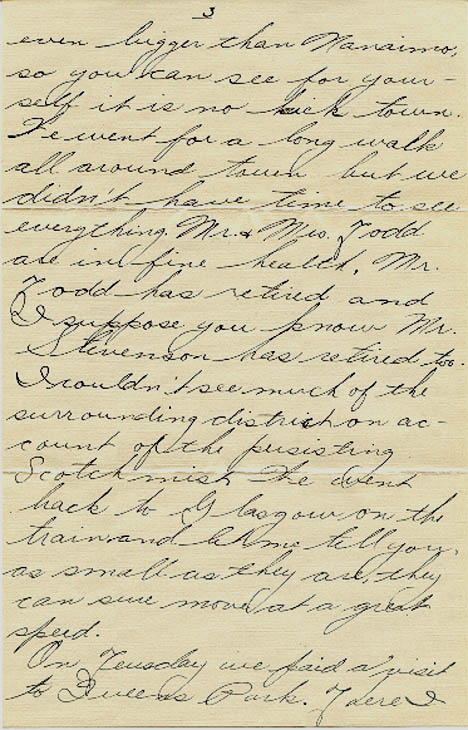 3
even bigger than Nanaimo,
so you can see for your-
self it is no hick town.
We went for a long walk
all around town but we
didn't have time to see
everything. Mr. & Mrs. Todd
are in fine health. Mr.
Todd has retired and
I suppose you know Mr.
Stevenson has retired too.
I couldn't see much of the
surrounding district on ac-
count of the persisting
Scotch mist. We went
back to Glasgow on the
train and let me tell you,
as small as they are, they
can sure move at a great
speed.
On Teusday we paid a visit
to Queens Park. There I